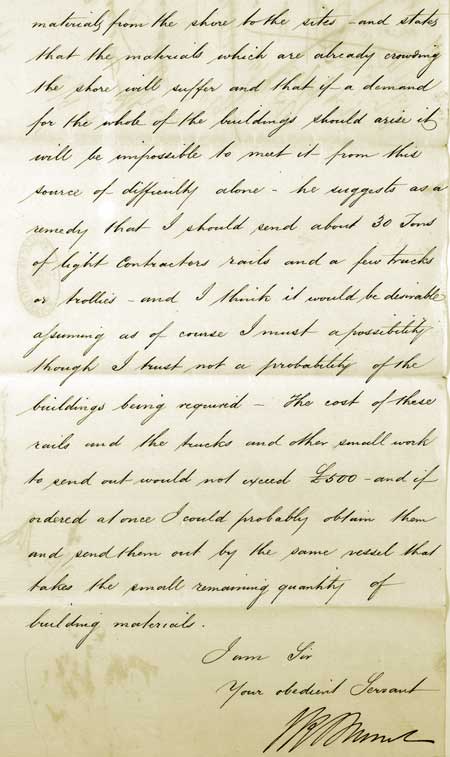 materials from the shore to the sites - and states
that the materials which are already crowding
the shore will suffer and that if a demand
for the whole of the buildings should arise it
will be impossible to meet it from this
source of difficulty alone - he suggests as a
remedy that I should send about 30 Tons
of light Contractors rails and a few trucks
or trollies - and I think it would be desirable
assuming as of course I must a possibility
though I trust not a probability of the
buildings being required - The cost of these
rails and the trucks and other small work
to send out would not exceed £500 - and if
ordered at once I could probably obtain them
and send them out by the same vessel that
takes the small remaining quantity of
building materials.
I am Sir
Your obedient Servant